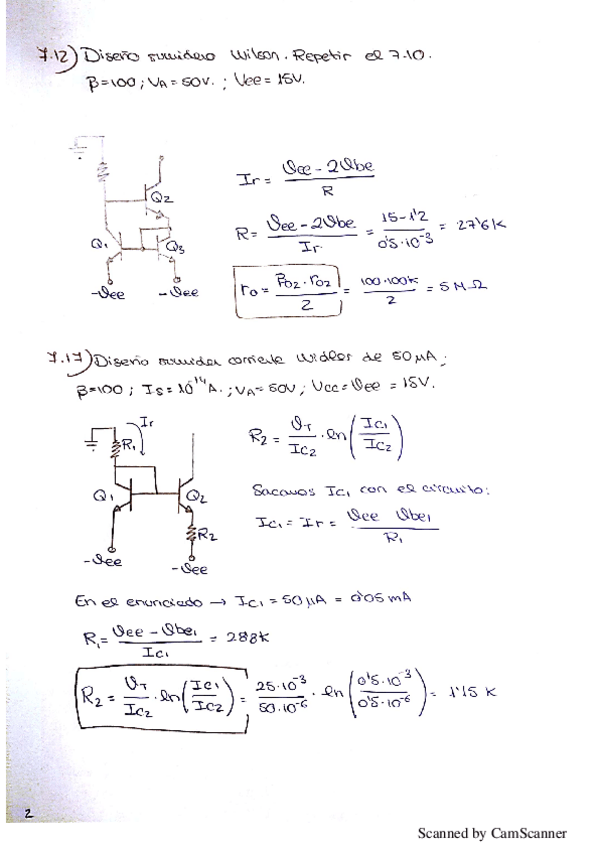 7.12) Diseño sumidero Wilson. Repetir el 7.10.
β=100; VA=50V.; Vee=15V.
Q2
Q1
Q3
-Vee
-Vee
Ir = (Vcc - 2Vbe)/R
R = (Vee - 2Vbe)/Ir = (15-1'2)/(0'5·10^-3) = 27'6 K
ro = (β02·r02)/2 = (100·100K)/2 = 5 MΩ
7.17) Diseño sumidor corriente Widler de 50 μA;
β=100; Is=10^-14 A.; VA=50V; Vcc=Vee=15V.
Ir
R1
Q1
Q2
R2
-Vee
-Vee
R2 = VT/Ic2 · ln(Ic1/Ic2)
Sacamos Ic1 con el circuito:
Ic1 = Ir = (Vee Vbe1)/R1
En el enunciado → Ic1 = 50μA = 0'05 mA
R1 = (Vee - Vbe1)/Ic1 = 288K
R2 = VT/Ic2 · ln(Ic1/Ic2) = (25·10^-3)/(50·10^-6) · ln((0'5·10^-3)/(0'5·10^-6)) = 1'15 K
2
Scanned by CamScanner